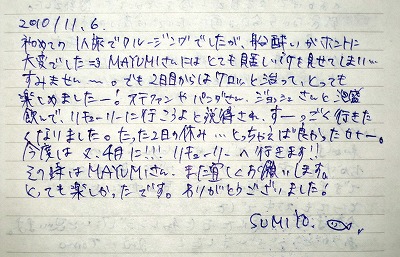 2010/11.6.
初めての1人旅でクルージングでしたが、船酔いがホントに
大変でした=3 MAYUMIさんにはとても見苦しい所を見せてしまい…
すみません〜。でも2日目からはケロッと治って、とっても
楽しめましたー!ステファンやパンダさん、ジョシュさんと泡盛
飲んで、リキューリーに行こうよと説得され、すーっごく行きた
くなりました。たった2日の休み…とっちゃえば良かったカナー。
今度は又、4月に!!! リキューリーへ行きます!!
その時はMAYUMIさん、また宜しくお願いします。
とっても楽しかったです。ありがとうございました!
SUMIYO.